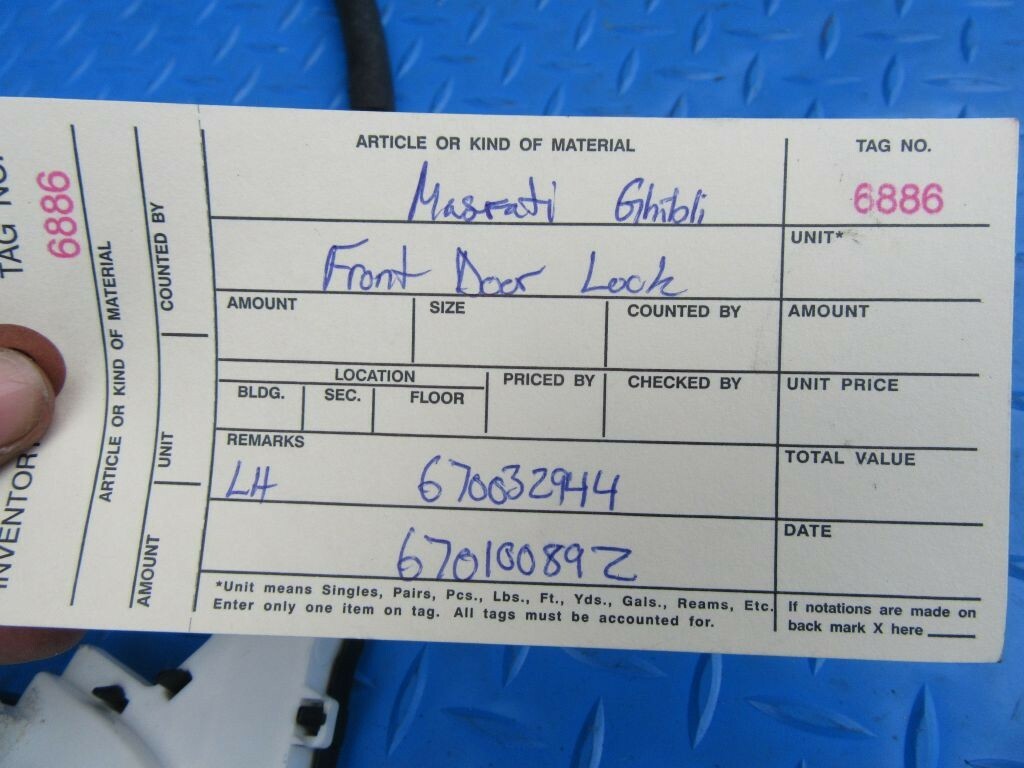 TAG NO.
6886
ARTICLE OR KIND OF MATERIAL
COUNTED BY
UNIT
AMOUNT
ARTICLE OR KIND OF MATERIAL
Masrati Ghibli
Front Door Lock
TAG NO.
6886
UNIT*
AMOUNT SIZE COUNTED BY AMOUNT
LOCATION PRICED BY CHECKED BY UNIT PRICE
BLDG. SEC. FLOOR
REMARKS TOTAL VALUE
LH 670032944
DATE
670100892
*Unit means Singles, Pairs, Pcs., Lbs., Ft., Yds., Gals., Reams, Etc.
Enter only one item on tag. All tags must be accounted for.
If notations are made on
back mark X here